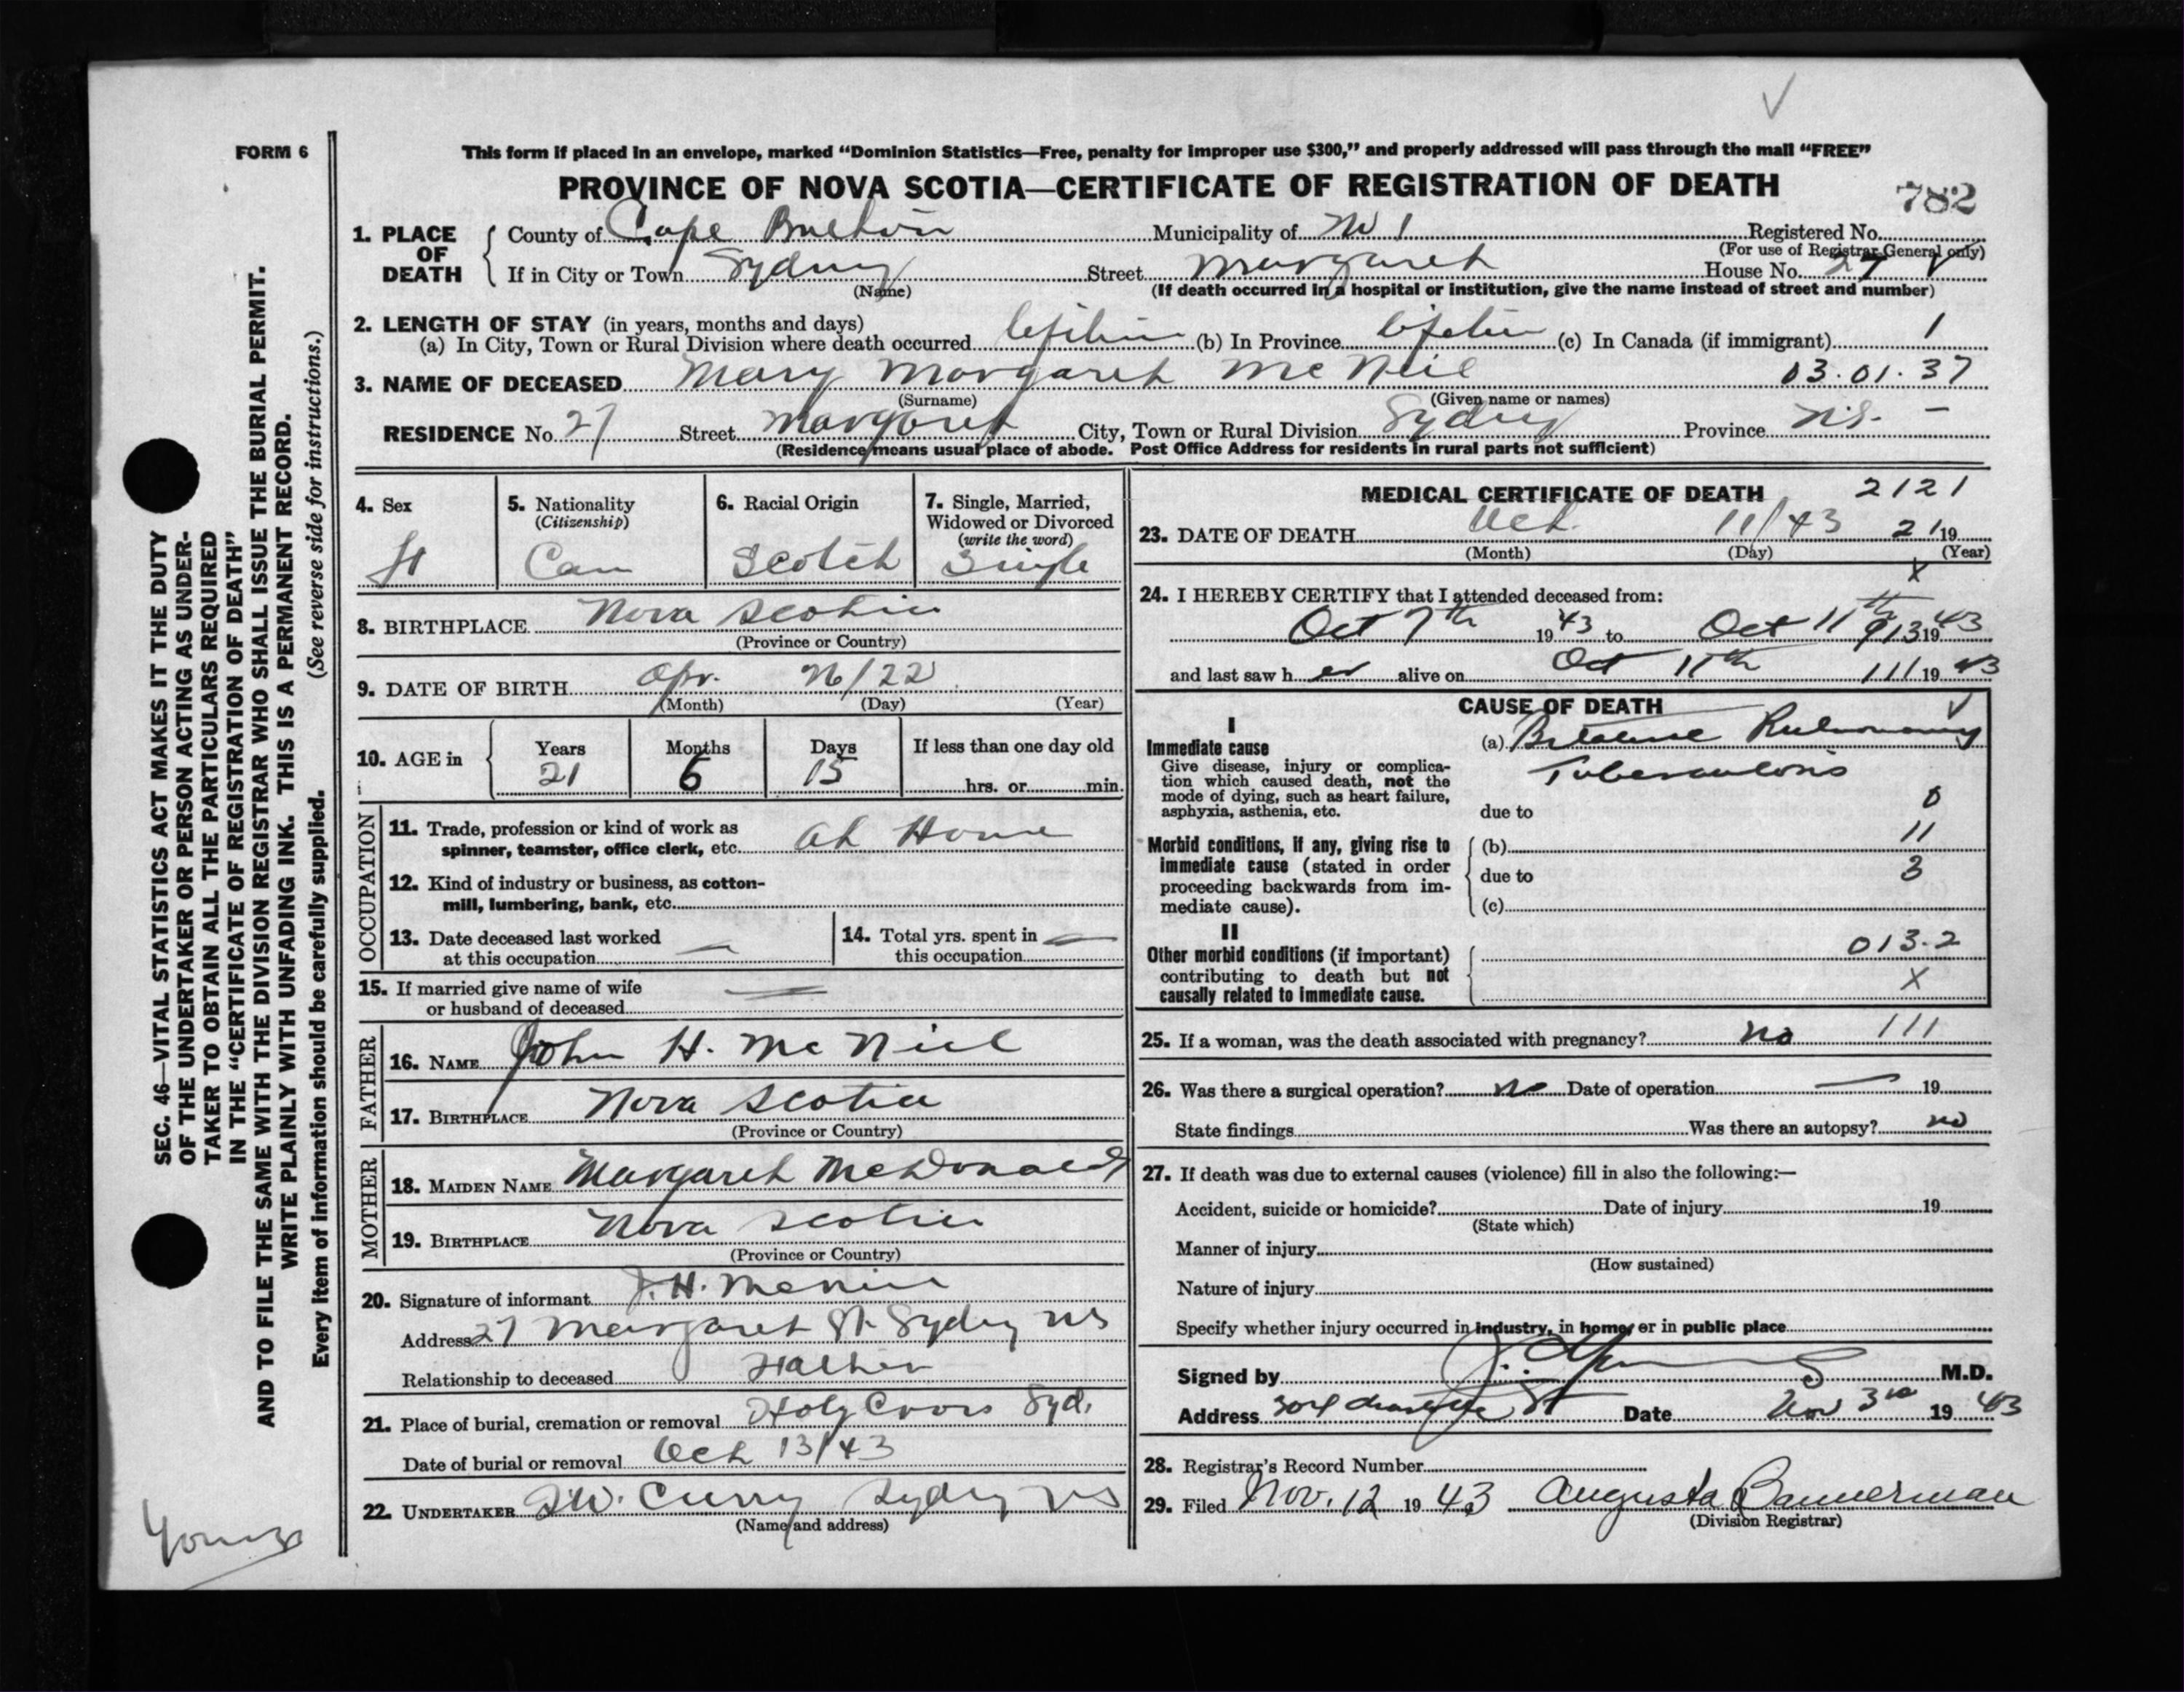 FORM 6
This form if placed in an envelope, marked “Dominion Statistics—Free, penalty for improper use $300,” and properly addressed will pass through the mail “FREE”
PROVINCE OF NOVA SCOTIA—CERTIFICATE OF REGISTRATION OF DEATH
782
1. PLACE OF DEATH { County of Cape Breton Municipality of W 1 Registered No.
(For use of Registrar General only)
If in City or Town Sydney Street Margaret House No. 27
(Name) (If death occurred in a hospital or institution, give the name instead of street and number)
2. LENGTH OF STAY (in years, months and days)
(a) In City, Town or Rural Division where death occurred lifetime (b) In Province lifetime (c) In Canada (if immigrant) 1
3. NAME OF DECEASED Mary Margaret Mc Neil 03.01.37
(Surname) (Given name or names)
RESIDENCE No. 27 Street Margaret City, Town or Rural Division Sydney Province N.S. —
(Residence means usual place of abode. Post Office Address for residents in rural parts not sufficient)
4. Sex
5. Nationality (Citizenship) Can
6. Racial Origin Scotch
7. Single, Married, Widowed or Divorced (write the word) Single
8. BIRTHPLACE Nova Scotia
(Province or Country)
9. DATE OF BIRTH Apr. 26/22
(Month) (Day) (Year)
10. AGE in { Years 21 Months 6 Days 15 If less than one day old
hrs. or min.
OCCUPATION
11. Trade, profession or kind of work as
spinner, teamster, office clerk, etc. At Home
12. Kind of industry or business, as cotton-
mill, lumbering, bank, etc.
13. Date deceased last worked
at this occupation —
14. Total yrs. spent in
this occupation —
15. If married give name of wife
or husband of deceased
FATHER
16. NAME John H. Mc Neil
17. BIRTHPLACE Nova Scotia
(Province or Country)
MOTHER
18. MAIDEN NAME Margaret McDonald
19. BIRTHPLACE Nova Scotia
(Province or Country)
20. Signature of informant J. H. McNeil
Address 27 Margaret St. Sydney NS
Relationship to deceased Father
21. Place of burial, cremation or removal Holy Cross Syd.
Date of burial or removal Oct 13/43
22. UNDERTAKER Curry Sydney NS
(Name and address)
MEDICAL CERTIFICATE OF DEATH 2121
23. DATE OF DEATH Oct. 11/43 21 19
(Month) (Day) (Year)
X
24. I HEREBY CERTIFY that I attended deceased from:
Oct 7th 1943 to Oct 11th 913 1943
and last saw her alive on Oct 11th 111 1943
CAUSE OF DEATH
I
Immediate cause
Give disease, injury or complica-
tion which caused death, not the
mode of dying, such as heart failure,
asphyxia, asthenia, etc.
(a) Bilateral Pulmonary
Tuberculosis
due to 0
Morbid conditions, if any, giving rise to
immediate cause (stated in order
proceeding backwards from im-
mediate cause).
(b) 11
due to 3
(c)
II
Other morbid conditions (if important)
contributing to death but not
causally related to immediate cause.
013.2
X
25. If a woman, was the death associated with pregnancy? no 111
26. Was there a surgical operation? no Date of operation — 19
State findings Was there an autopsy? no
27. If death was due to external causes (violence) fill in also the following:—
Accident, suicide or homicide? Date of injury 19
(State which)
Manner of injury
(How sustained)
Nature of injury
Specify whether injury occurred in industry, in home, or in public place
Signed by M.D.
Address St Date Nov 3rd 1943
28. Registrar's Record Number
29. Filed Nov. 12 1943 Augusta Bannerman
(Division Registrar)
SEC. 46—VITAL STATISTICS ACT MAKES IT THE DUTY
OF THE UNDERTAKER OR PERSON ACTING AS UNDER-
TAKER TO OBTAIN ALL THE PARTICULARS REQUIRED
IN THE “CERTIFICATE OF REGISTRATION OF DEATH”
AND TO FILE THE SAME WITH THE DIVISION REGISTRAR WHO SHALL ISSUE THE BURIAL PERMIT.
WRITE PLAINLY WITH UNFADING INK. THIS IS A PERMANENT RECORD.
Every item of information should be carefully supplied. (See reverse side for instructions.)
Young